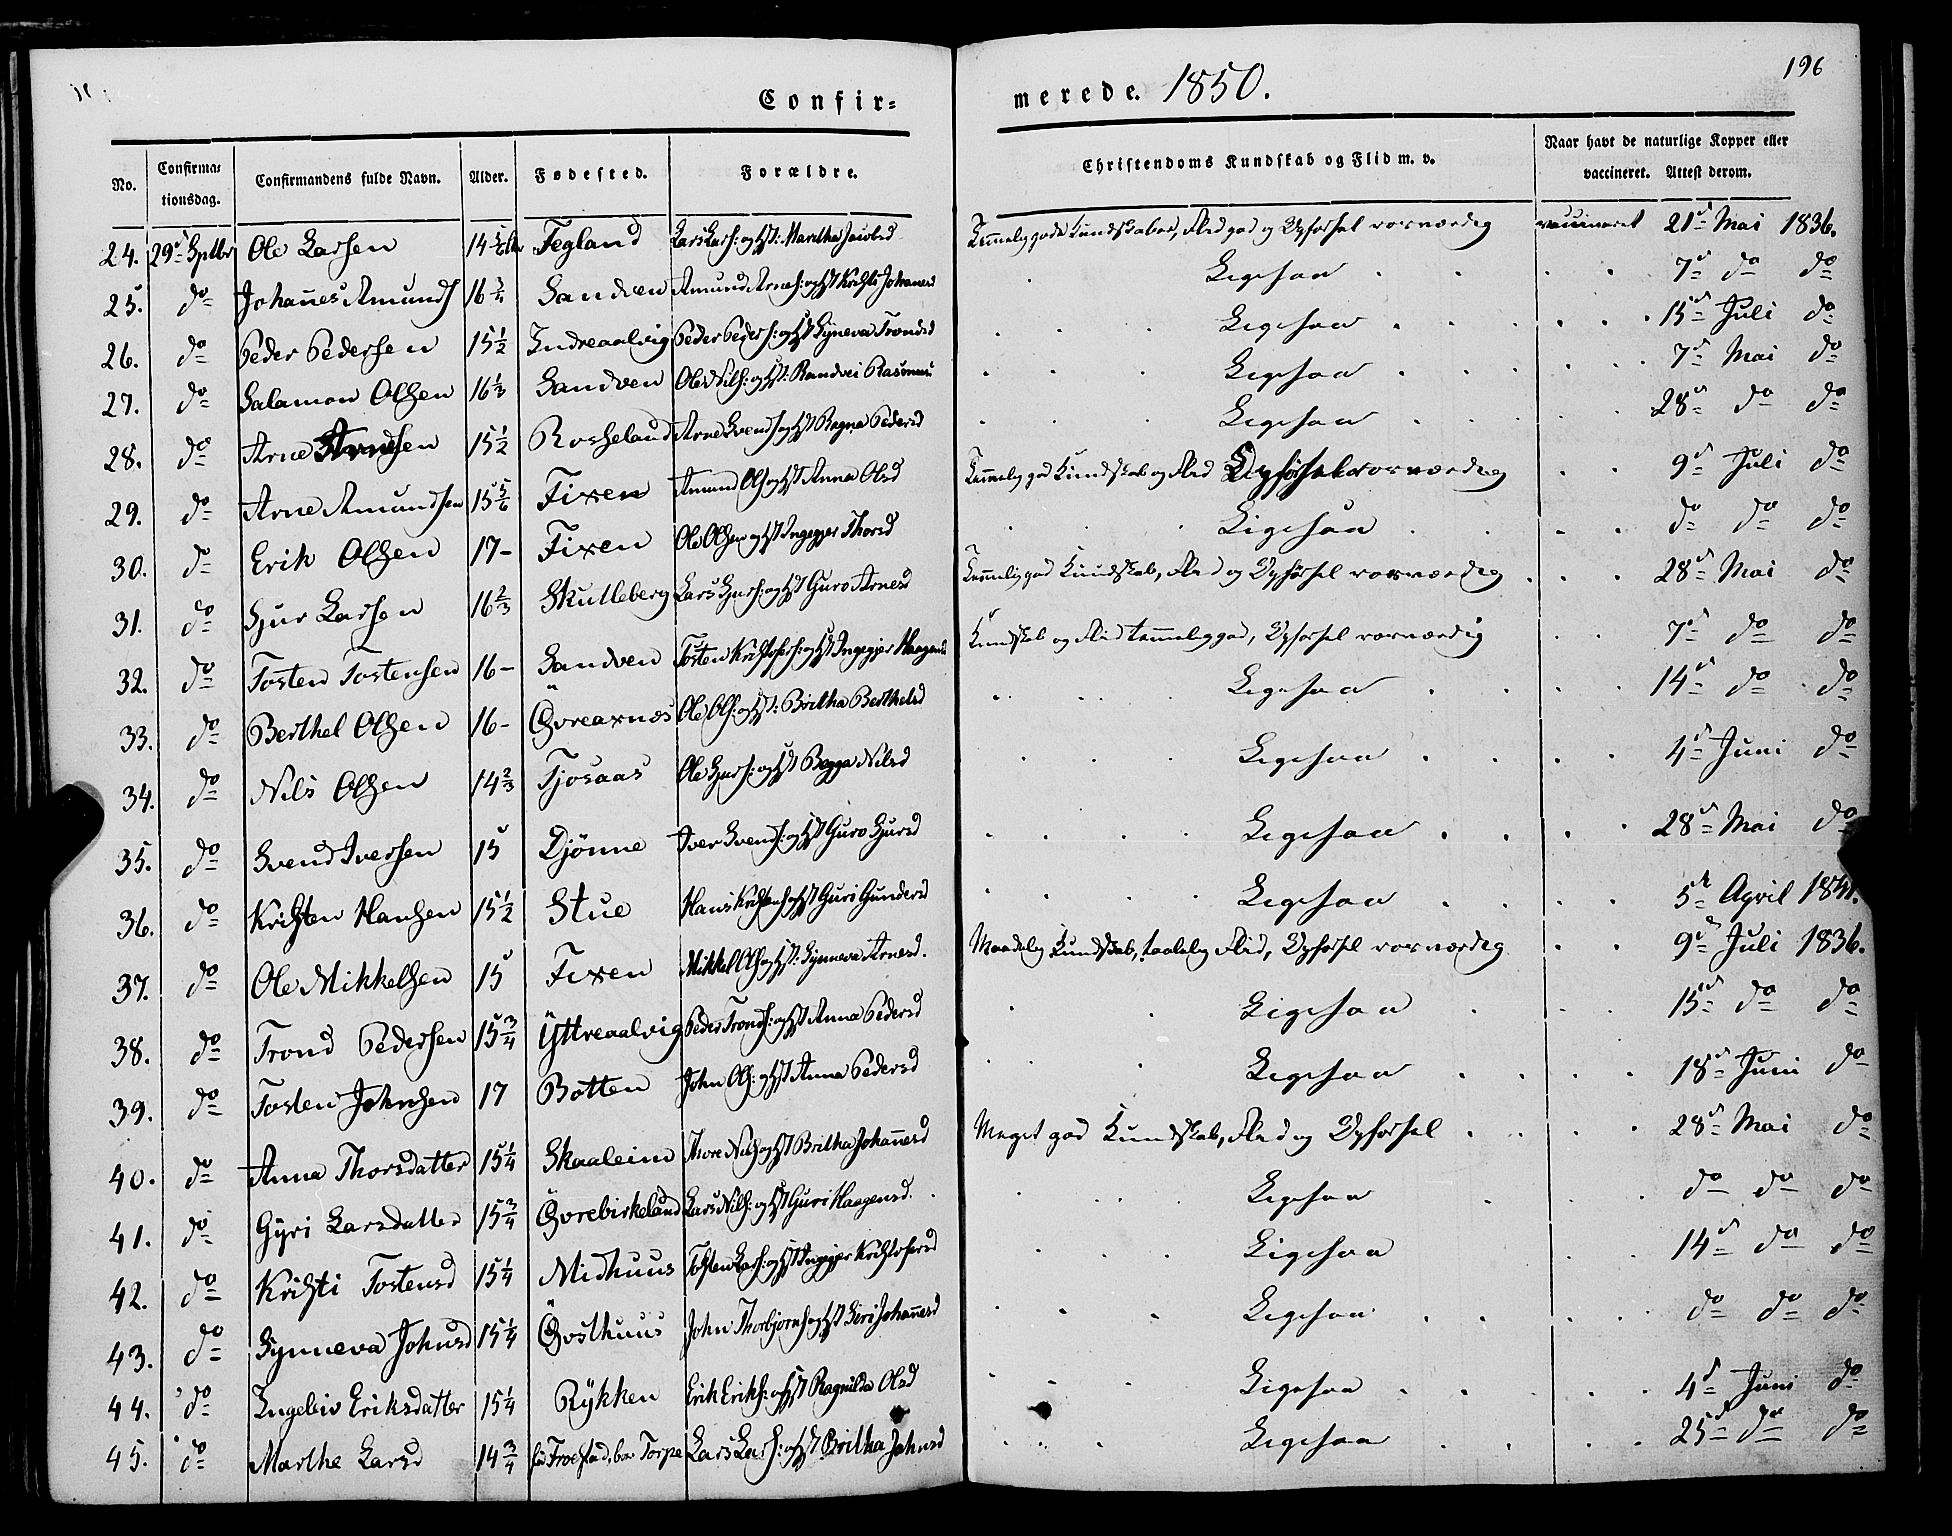 Confir=
merede. 1850.
196
No. Confirma-tionsdag. Confirmandens fulde Navn. Alder. Fødested. Forældre. Christendoms Kundskab og Flid m. v. Naar havt de naturlige Kopper eller vaccineret. Attest derom.
24. 29d Sptbr Ole Larsen 14 Tegland Lars Lars: og H: Maritha Jacobsd Temmelig gode Kundskaber, Flid god og Opførsel rosværdig vaccineret 21d Mai 1836.
25. do Johannes Amunds 16 3/4 Sandven Amund Arnes: og H Kristi Johannesd Ligesaa 7d do do
26. do Peder Pedersen 15 1/2 Indreaalvig Peder Peders: og H Synneva Trondsd Ligesaa 15d Juli do
27. do Salamon Olsen 16 1/3 Sandven Ole Nils: og H: Randvei Rasmus: Ligesaa 7d Mai do
28. do Arne Arnesen 15 1/2 Rosseland Arne Svends og H Ragna Pedersd Ligesaa 28d do do
29. do Arne Amundsen 15 5/6 Fixen Amund Ols og H Anna Olsd Temmelig god Kundskab og Flid Opførsel rosværdig 9d Juli do
30. do Erik Olsen 17 - Fixen Ole Olsen og H Ingegjer Thorsd Ligesaa do do do
31. do Sjur Larsen 16 2/3 Skutleberg Lars Sjurs: og H Guro Arnesd Temmelig god Kundskab, Flid og Opførsel rosværdig 28d Mai do
32. do Tosten Tostensen 16 - Sandven Tosten Kristofers: og H Ingegjer Haagensd Kundskab og Flid temmelig god, Opførsel rosværdig 7d do do
33. do Berthel Olsen 16 - Øvreaxnæs Ole Ols: og H: Britha Berthelsd Ligesaa 14d do do
34. do Nils Olsen 14 2/3 Tjosaas Ole Sjurs: og H Begga Nilsd Ligesaa 4d Juni do
35. do Svend Iversen 15 Djønne Iver Svends: og H Guro Sjursd Ligesaa 28d Mai do
36. do Kristen Hansen 15 1/2 Stue Hans Kristens og H Guri Gundersd Ligesaa 5t April 1841.
37. do Ole Mikkelsen 15 Fixen Mikkel Ols og H: Synneva Arnesd. Maadelig Kundskab, taalelig Flid, Opførsel rosværdig 9d Juli 1836.
38. do Trond Pedersen 15 3/4 Yttreaalvig Peder Tronds: og H Anna Pedersd Ligesaa 15d do do
39. do Tosten Johnsen 17 Botten John Ols: og H Anna Pedersd Ligesaa 18d Juni do
40. do Anna Thorsdatter 15 1/4 Skaaleim Thore Nils og H Britha Johannesd Meget god Kundskab, Flid og Opførsel 28d Mai do
41. do Gyri Larsdatter 15 3/4 Øvrebirkeland Lars Nils: og H Guri Haagensd. Ligesaa do do do
42. do Kristi Tostensd 15 1/4 Midhuus Tosten Lars: og H Ingegjer Kristofersd Ligesaa 14d do do
43. do Synneva Johnsd 15 1/4 Øvsthuus John Thorbjørns og H Siri Johannesd Ligesaa do do do
44. do Ingeleiv Eriksdatter 15 1/4 Rykken Erik Eriks: og H Ragnilda Olsd Ligesaa 4d Juni do
45. do Marthe Larsd 14 3/4 Torpe Lars Lars: og H Britha Johnsd Ligesaa 25d do do